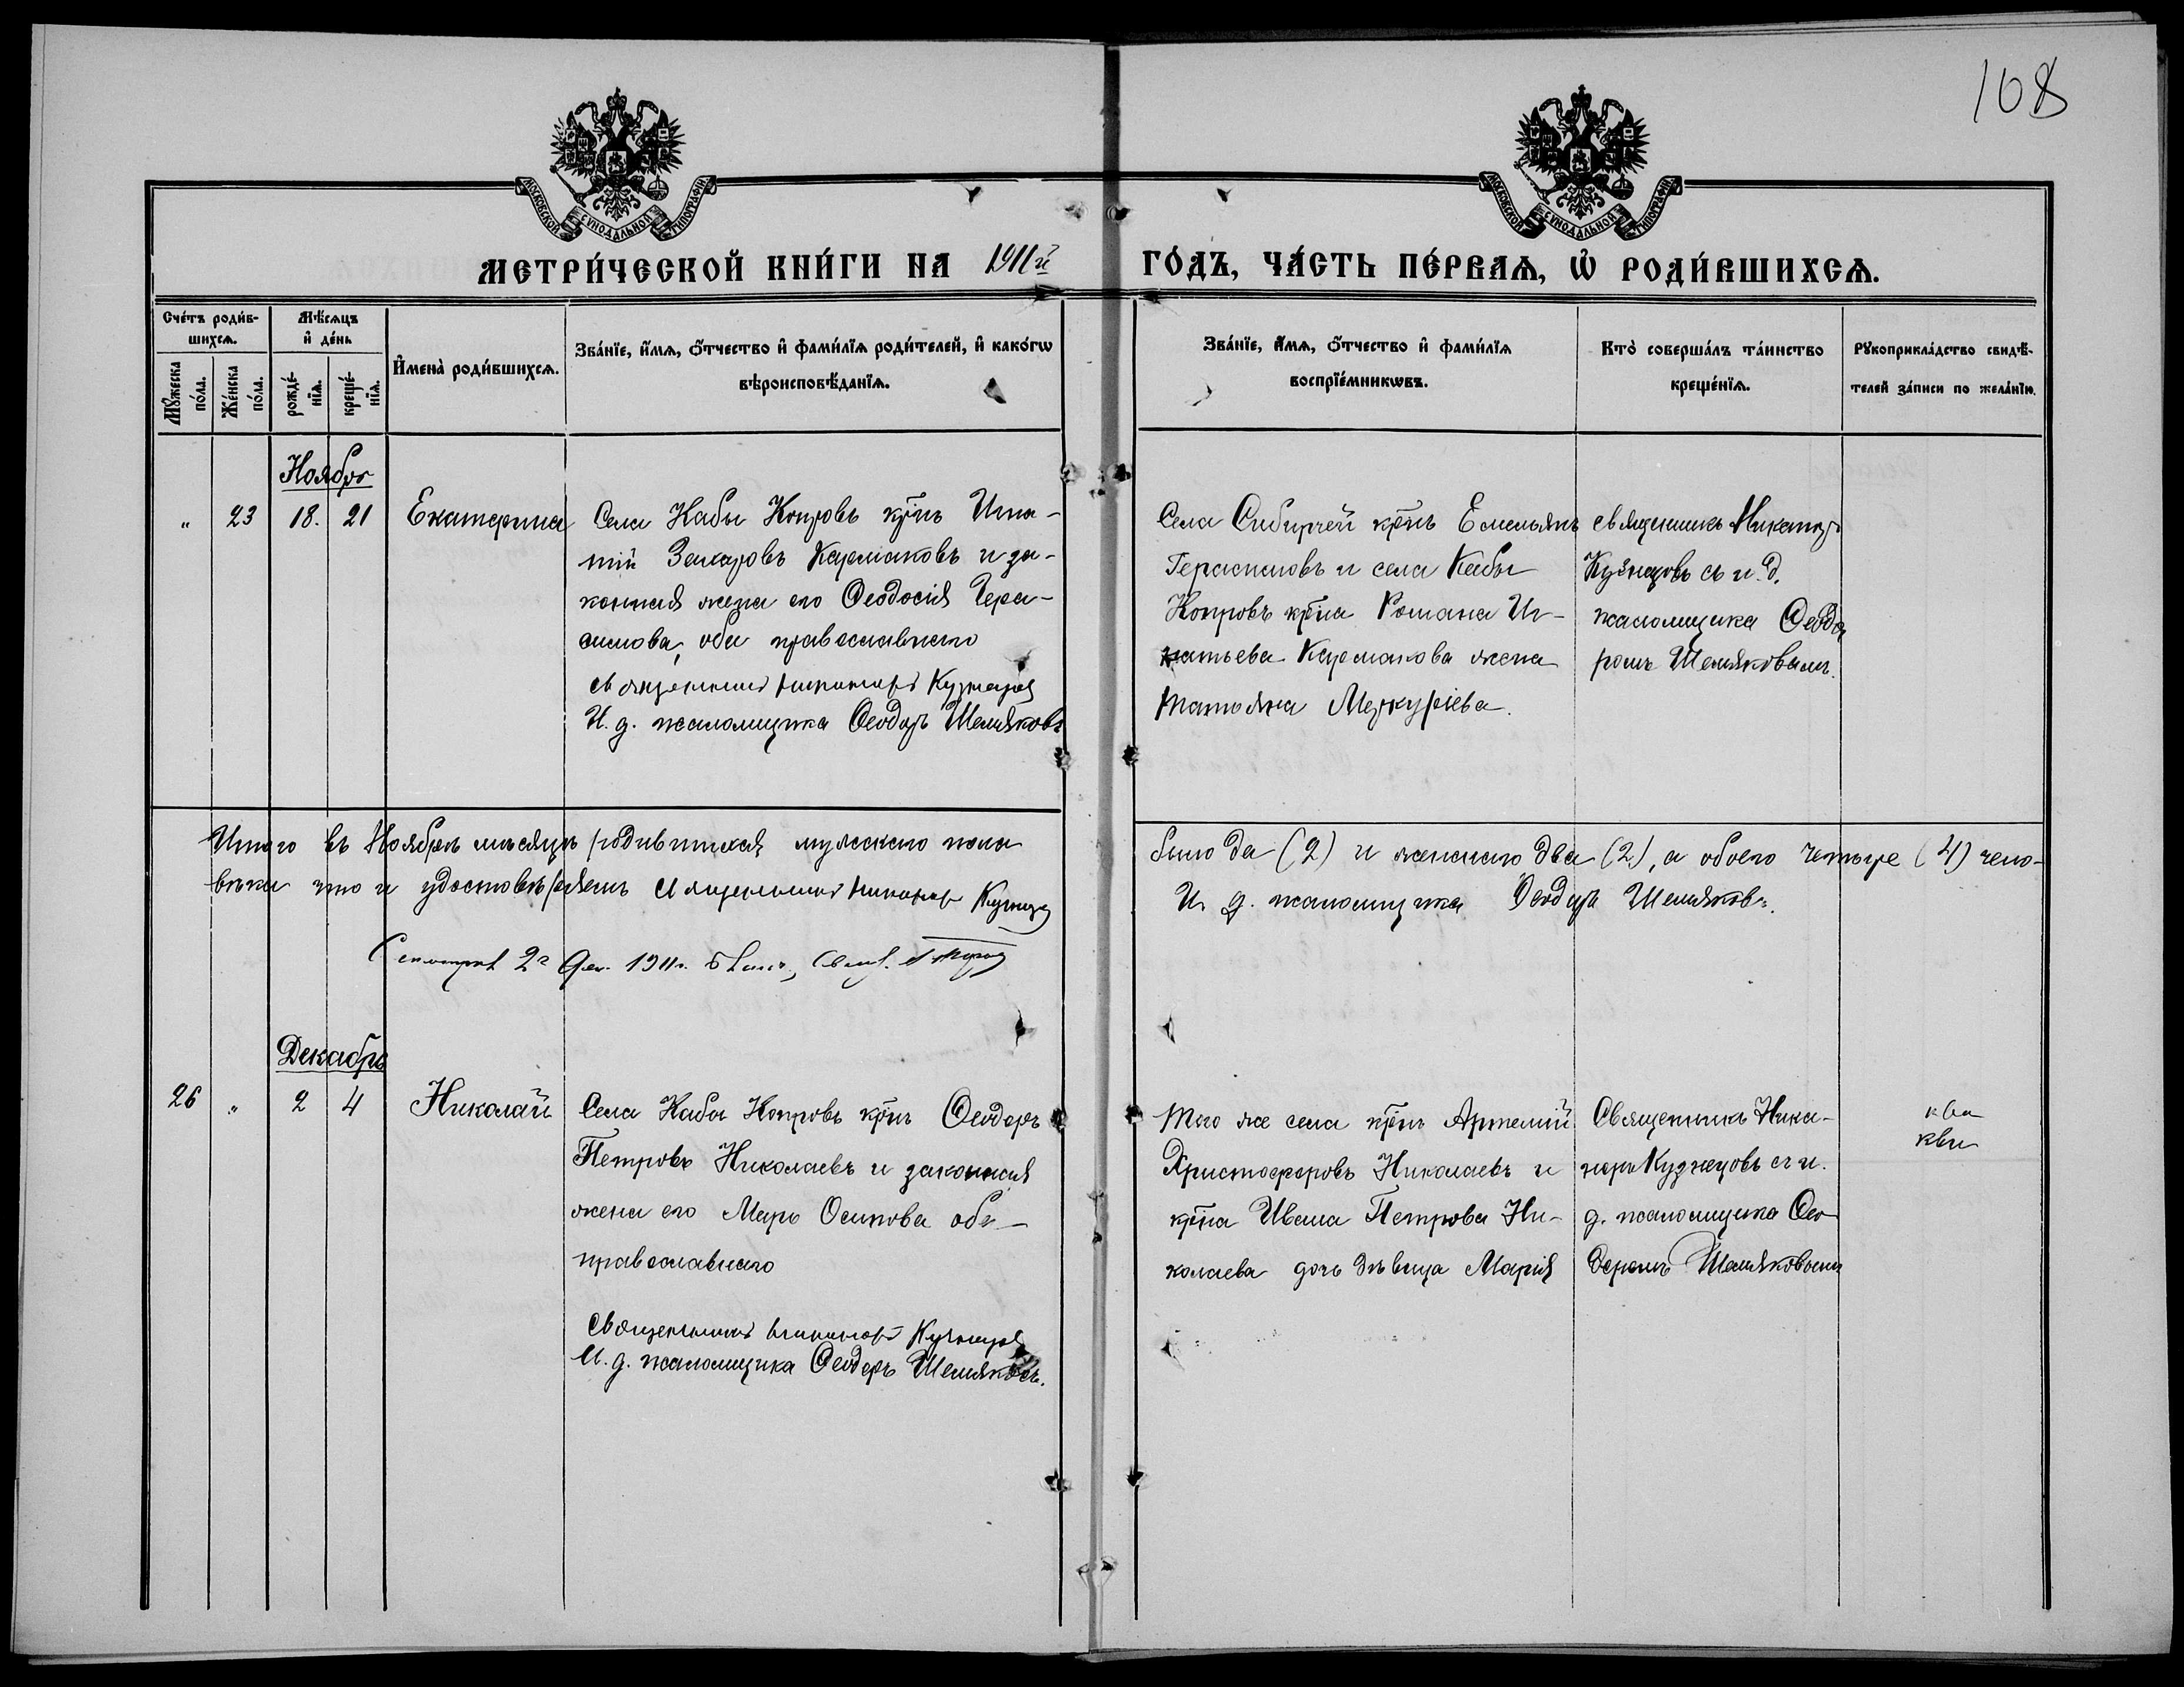 108
МОСКОВСКОЙ СѴНОДАЛЬНОЙ ТИПОГРАФІИ
МОСКОВСКОЙ СѴНОДАЛЬНОЙ ТИПОГРАФІИ
МЕТРИ́ЧЕСКОЙ КНИ́ГИ НА 1911й ГО́ДЪ, ЧА́СТЬ ПЕ́РВАѦ, Ѡ҆ РОДИ́ВШИХСѦ.
Сче́тъ роди́в-
шихсѧ.
Мꙋ́жеска по́ла.
Же́нска по́ла.
Мѣ́сѧцъ
и҆ де́нь
рожде́-нїѧ.
креще́-нїѧ.
И҆мена̀ роди́вшихсѧ.
Зва́нїе, и҆́мѧ, ѻ҆́тчество и҆ фами́лїѧ роди́телей, и҆ како́гѡ
вѣроисповѣ́данїѧ.
Зва́нїе, и҆́мѧ, ѻ҆́тчество и҆ фами́лїѧ
воспрїе́мникѡвъ.
Кто̀ соверша́лъ та́инство
креще́нїѧ.
Рꙋкоприкла́дство свидѣ́-
телей за́писи по жела́нїю.
Ноябрь
" 23 18. 21 Екатерина
Села Кабы Копровъ крнъ Игна-
тій Захаровъ Кармаковъ и за-
конная жена его Ѳеодосія Гера-
симова, оба православнаго
Священникъ Никаноръ Кузнецов
И. д. псаломщика Ѳеодоръ Шемяковъ
Села Сибирчей крнъ Емельянъ
Герасимовъ и села Кабы
Копровъ крна Романа Иг-
натьева Кармакова жена
Татьяна Меркуріева.
Священникъ Никаноръ
Кузнецовъ съ и. д.
псаломщика Ѳеодо
ромъ Шемяковымъ.
Итого въ Ноябрѣ мѣсяцѣ родившихся мужескаго пола было два (2) и женскаго два (2), а обоего четыре (4) чело-
вѣка что и удостовѣряемъ Священникъ Никаноръ Кузнецов
И. д. псаломщика Ѳеодоръ Шемяковъ.
2 Дек. 1911 г.
Декабрь
26 " 2 4 Николай
Села Кабы Копровъ крнъ Ѳеодоръ
Петровъ Николаевъ и законная
жена его Марѳа Осипова оба
православнаго
Священникъ Никаноръ Кузнецов
И. д. псаломщика Ѳеодоръ Шемяковъ.
Того же села крнъ Артемій
Христофоровъ Николаевъ и
крна Ивана Петрова Ни-
колаева дочь дѣвица Марія
Священникъ Ника-
норъ Кузнецовъ съ и.
д. псаломщика Ѳео
доромъ Шемяковымъ